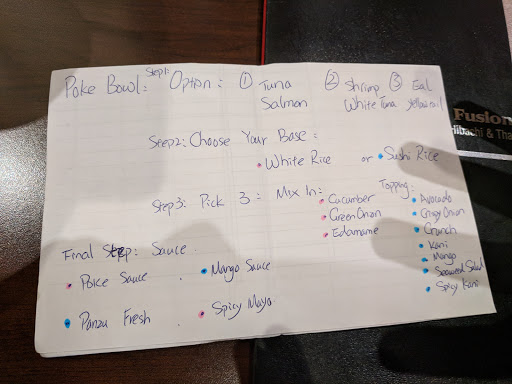 Poke Bowl: Step1: Option: ① Tuna ② Shrimp ③ Eal
Salmon White Tuna Yellowtail
Fusion
Hibachi & Tha
Step2: Choose Your Base:
White Rice or Sushi Rice
Step3: Pick 3: Mix In: Topping:
Cucumber Avocado
Green Onion Crispy Onion
Edamame Crunch
Kani
Mango
Seaweed Salad
Spicy Kani
Final Step: Sauce
Poke Sauce Mango Sauce
Ponzu Fresh Spicy Mayo